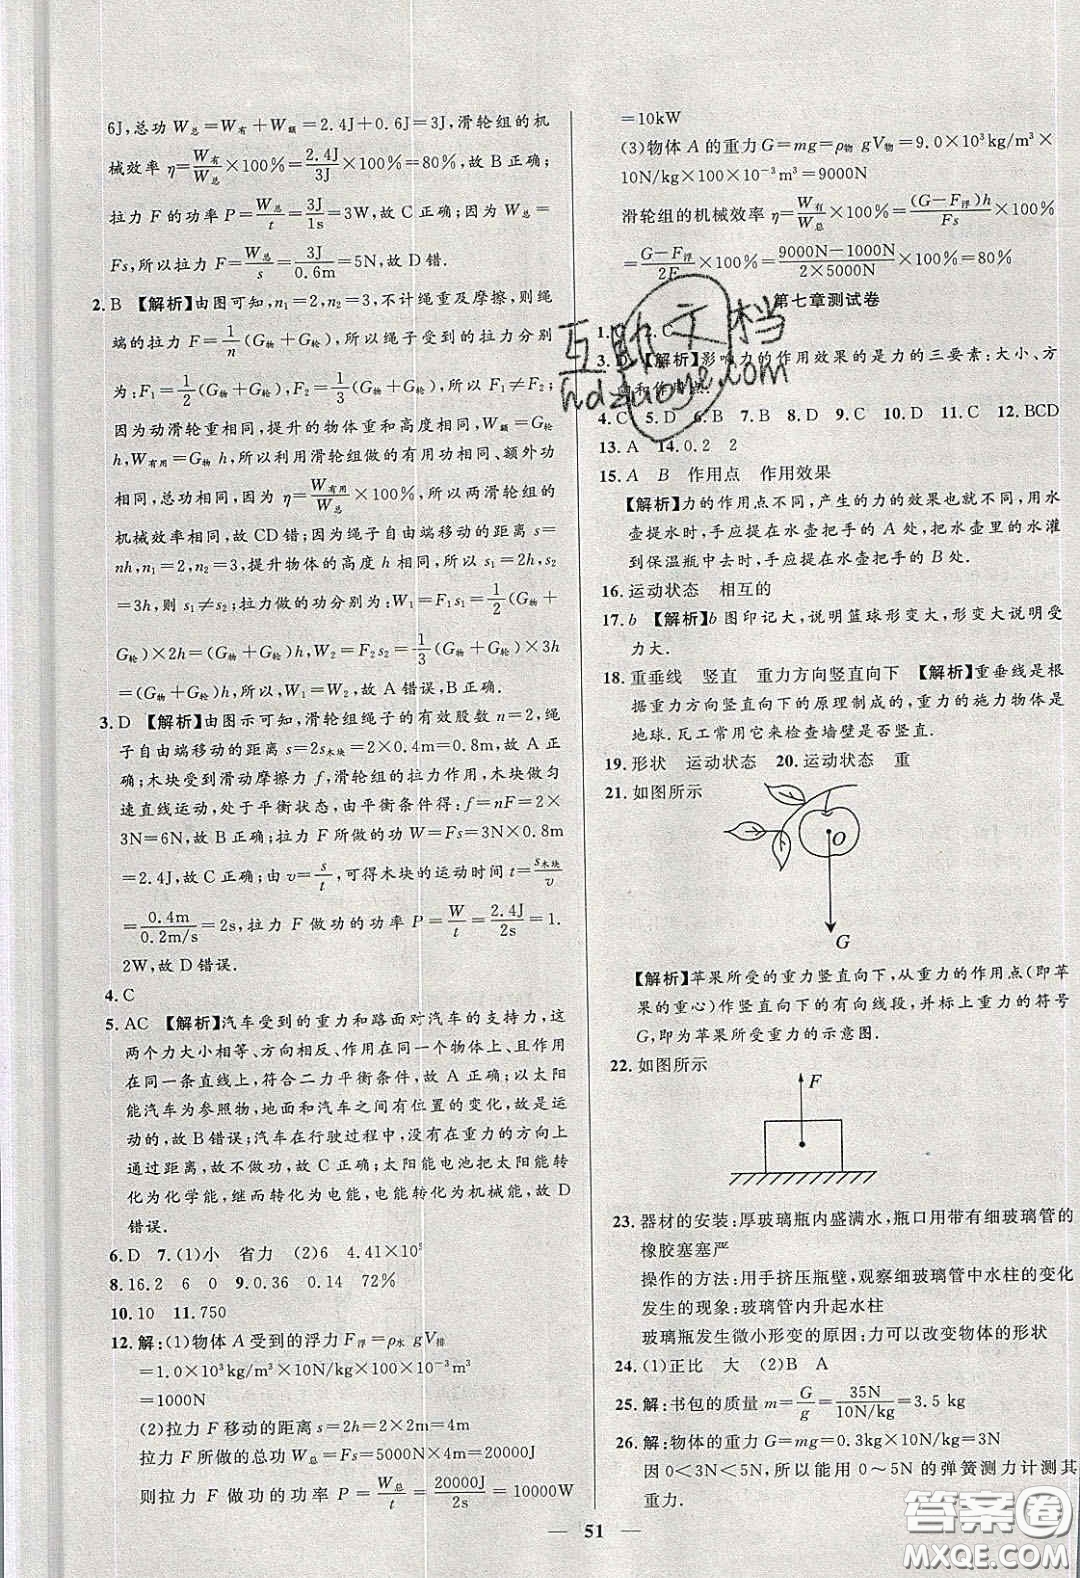 6J,总功 W总=W有+W额=2.4J+0.6J=3J,滑轮组的机
械效率 η=W有/W总×100%=2.4J/3J×100%=80%,故 B 正确;
拉力 F 的功率 P=W总/t=3J/1s=3W,故 C 正确;因为 W总=
Fs,所以拉力 F=W总/s=3J/0.6m=5N,故 D 错.
2.B 【解析】由图可知,n1=2,n2=3,不计绳重及摩擦,则绳
端的拉力 F=1/n(G物+G轮),所以绳子受到的拉力分别
为:F1=1/2(G物+G轮),F2=1/3(G物+G轮),所以 F1≠F2;
因为动滑轮重相同,提升的物体重和高度相同,W额=G轮
h,W有用=G物h,所以利用滑轮组做的有用功相同、额外功
相同,总功相同,因为 η=W有用/W总×100%,所以两滑轮组的
机械效率相同,故 CD错;因为绳子自由端移动的距离 s=
nh,n1=2,n2=3,提升物体的高度 h 相同,所以 s1=2h,s2
=3h,则 s1≠s2;拉力做的功分别为:W1=F1s1=1/2(G物+
G轮)×2h=(G物+G轮)h,W2=F2s2=1/3(G物+G轮)×3h
=(G物+G轮)h,所以 W1=W2,故 A 错误,B 正确.
3.D 【解析】由图示可知,滑轮组绳子的有效股数 n=2,绳
子自由端移动的距离 s=2s木块=2×0.4m=0.8m,故 A 正
确;木块受到滑动摩擦力 f,滑轮组的拉力作用,木块做匀
速直线运动,处于平衡状态,由平衡条件得:f=nF=2×
3N=6N,故 B 正确;拉力 F 所做的功 W=Fs=3N×0.8m
=2.4J,故 C 正确;由 v=s/t,可得木块的运动时间 t=s木块/v
=0.4m/0.2m/s=2s,拉力 F 做功的功率 P=W/t=2.4J/2s=1.
2W,故 D 错误.
4.C
5.AC 【解析】汽车受到的重力和路面对汽车的支持力,这
两个力大小相等、方向相反、作用在同一个物体上、且作用
在同一条直线上,符合二力平衡条件,故 A 正确;以太阳
能汽车为参照物,地面和汽车之间有位置的变化,故是运
动的,故 B 错误;汽车在行驶过程中,没有在重力的方向上
通过距离,故不做功,故 C 正确;太阳能电池把太阳能转
化为化学能,继而转化为电能,电能转化为机械能,故 D
错误.
6.D 7.(1)小 省力 (2)6 4.41×10⁵
8.16.2 6 0 9.0.36 0.14 72%
10.10 11.750
12.解:(1)物体 A 受到的浮力 F浮=ρ水 gV排
=1.0×10³kg/m³×10N/kg×100×10⁻³m³
=1000N
(2)拉力 F 移动的距离 s=2h=2×2m=4m
拉力 F 所做的总功 W总=Fs=5000N×4m=20000J
则拉力 F 做功的功率 P=W总/t=20000J/2s=10000W
=10kW
(3)物体 A 的重力 G=mg=ρ物 gV物=9.0×10³kg/m³×
10N/kg×100×10⁻³m³=9000N
滑轮组的机械效率 η=W有/W总×100%=(G-F浮)h/Fs×100%
=G-F浮/2F×100%=9000N-1000N/2×5000N×100%=80%
第七章测试卷
2.C
3.D 【解析】影响力的作用效果的是力的三要素:大小、方
4.C 5.D 6.B 7.B 8.D 9.C 10.D 11.C 12.BCD
13.A 14.0.2 2
15.A B 作用点 作用效果
【解析】力的作用点不同,产生的力的效果也就不同,用水
壶提水时,手应提在水壶把手的 A 处,把水壶里的水灌
到保温瓶中去时,手应提在水壶把手的 B 处.
16.运动状态 相互的
17.b 【解析】b图印记大,说明篮球形变大,形变大说明受
力大.
18.重垂线 竖直 重力方向竖直向下 【解析】重垂线是根
据重力方向竖直向下的原理制成的,重力的施力物体是
地球.瓦工常用它来检查墙壁是否竖直.
19.形状 运动状态 20.运动状态 重
21.如图所示
O
G
【解析】苹果所受的重力竖直向下,从重力的作用点(即苹
果的重心)作竖直向下的有向线段,并标上重力的符号
G,即为苹果所受重力的示意图.
22.如图所示
F
23.器材的安装:厚玻璃瓶内盛满水,瓶口用带有细玻璃管的
橡胶塞塞严
操作的方法:用手挤压瓶壁,观察细玻璃管中水柱的变化
发生的现象:玻璃管内升起水柱
玻璃瓶发生微小形变的原因:力可以改变物体的形状
24.(1)正比 大 (2)B A
25.解:书包的质量 m=G/g=35N/10N/kg=3.5 kg
26.解:物体的重力 G=mg=0.3kg×10N/kg=3N
因 0<3N<5N,所以能用 0~5N 的弹簧测力计测其
重力.
51
互助文档
hdzuoye.com
答案圈
MXQE.COM